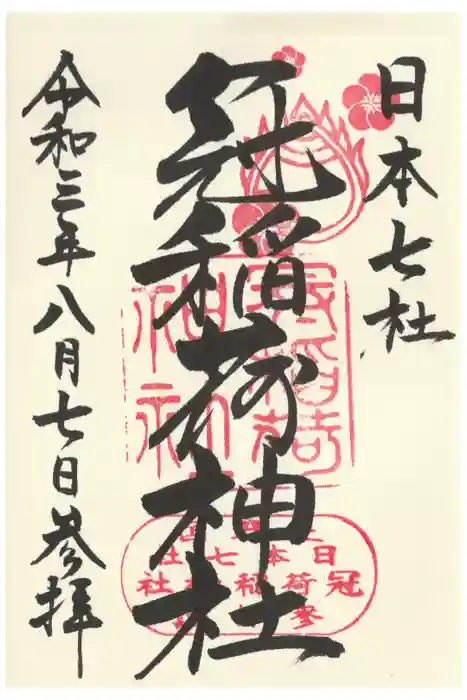 日本七社
冠稲荷神社
令和三年八月七日参拝
冠稲荷神社
日本七社
冠稲荷神社